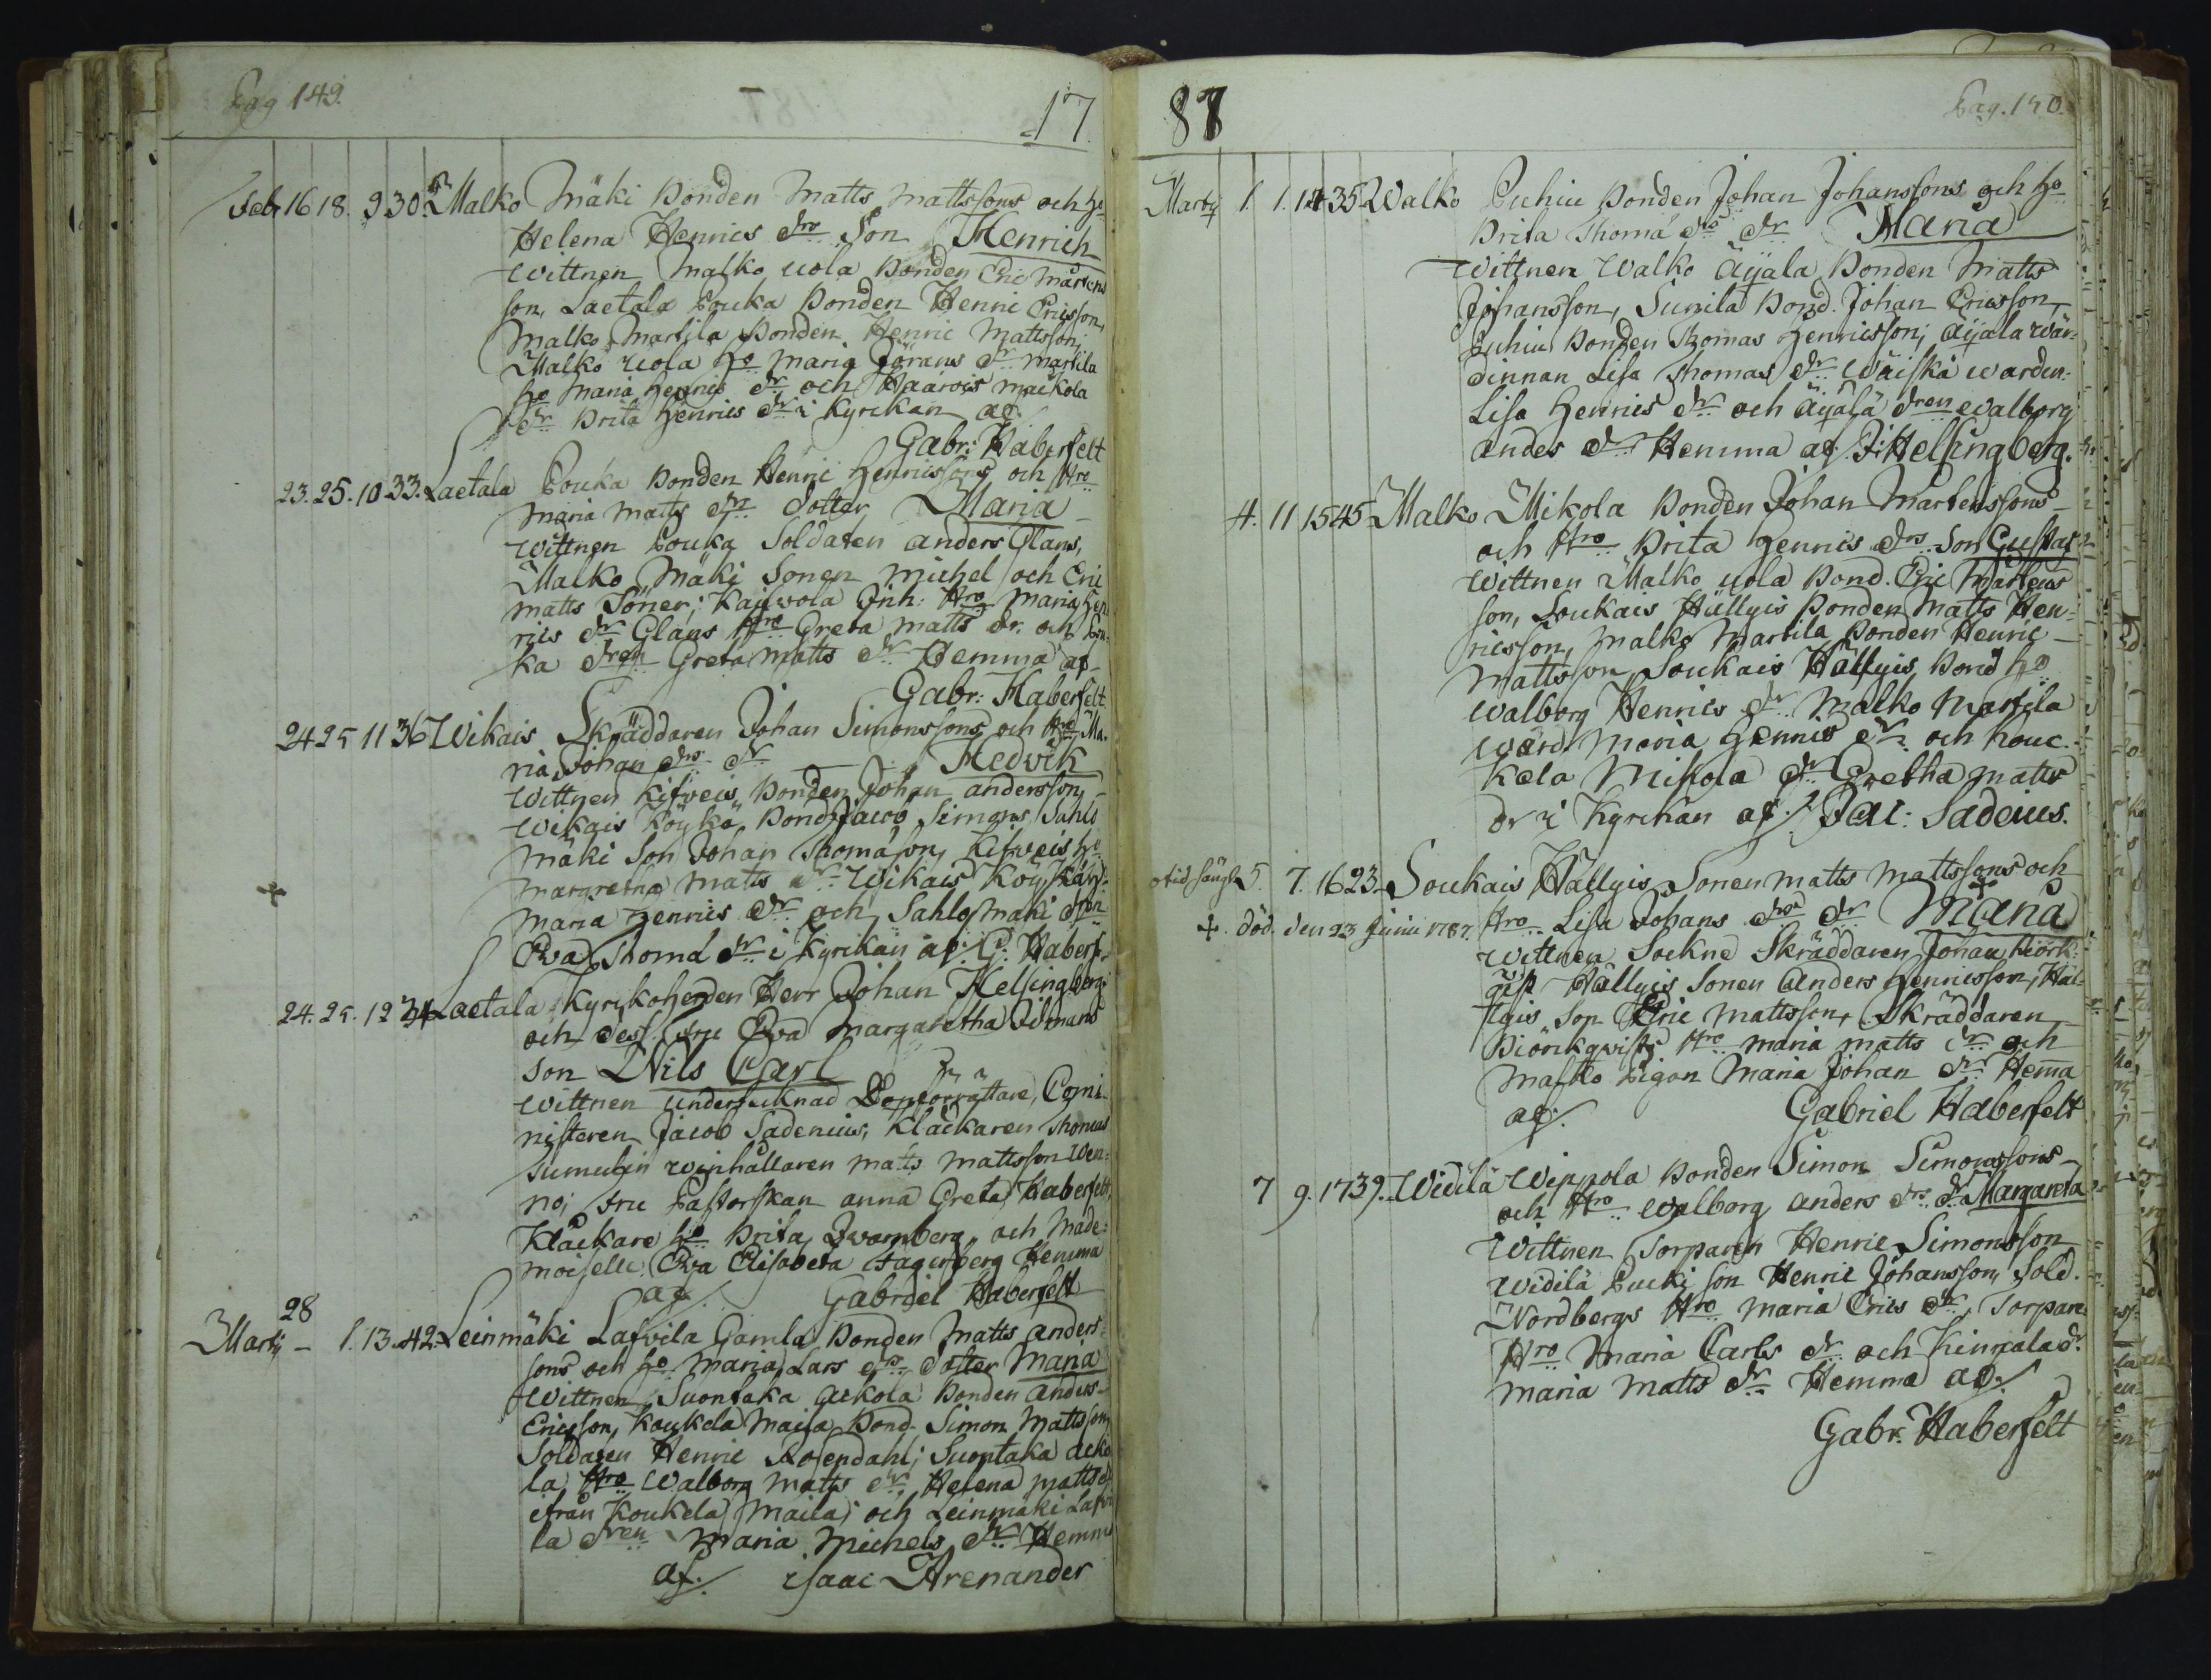 Pag 149.
17
Feb. 16 18. 9 30. Malko Mäki Bonden Matts Mattssons och ho
Helena Henrics dro Son Henrich
Wittnen Malko uola Bonden Eric Mårtens
son, Laetala Pouka Bonden Henric Ericsson,
Malko Martila Bonden Henric Mattsson;
Malko Uola ho Maria Jörans dr Martila
ho Maria Henrics dr och Haarois Maikola
dr Brita Henrics dr i Kyrckan af:
Gabr: Haberfelt
23. 25. 10 33. Laetala Pouka Bonden Henric Henricssons och Hro
Maria Matts dr dotter Maria
Wittnen Pouka Soldaten Anders Glans,
Malko Mäki Sonen Michel och Eric
Matts Söner; Inh: Hro Maria Hen
rics dr Glans Hro Greta Matts dr. och Pou-
ka dren Greta Matts dr Hemma af
Gabr: Haberfelt
24 25 11 36 Wikais Skräddaren Johan Simonssons och Hro Ma-
ria Johan drs dr Hedvik
Wittnen Kifveis Bonden Johan Andersson,
Wikais Köykä Bond Jacob Simons Sahlo
mäki Son Johan Thomasson, Kifveis ho
Margretha Matts dr Wikais Köykä
Maria Henrics dr och Sahlomäki dren
Eva Thoma dr i Kyrckan af: G: Haberf.
24. 25. 12 34 Laetala Kyrckoherden Herr Johan Helsingbergs
och dess Fru Eva Margaretha Idmans
Son Nils Carl
Wittnen undertecknad Döpförrättare, Comi-
nisteren Jacob Sadenius, Klåckaren Thomas
Sumelin Matts Mattsson Wen-
no; Fru Pastorskan Anna Greta Haberfelt,
Klåckare ho Brita Qwarnberg och Made-
moiselle Eva Elisabeta Hagerberg Hemma
af Gabriel Haberfelt
28
Martij - 1. 13. 42. Leinmäki Lafvila Gamla Bonden Matts Anders-
sons och ho Maria Lars drs dotter Maria
Wittnen Suontaka Ackola Bonden Anders
Ericsson, Koukela Maila Bond. Simon Mattsson,
Soldaten Henric Rosendahl; Suontaka Acko
la Hro Walborg Matts dr Helena Matts dr
ifrån Koukela Maila; och Leinmäki Lafvi
la dren Maria Michels dr Hemma
af. Isaac Arenander
87
Pag. 150.
Martij 1. 1. 14 35 Walko Puhiu Bonden Johan Johanssons och ho
Brita Thoma drs dr Maria
Wittnen Walko Äijälä Bonden Matts
Johansson, Sunila Bond. Johan Ericsson,
Puhiu Bonden Thomas Henricsson; Äijälä Wär-
dinnan Lisa Thomas dr Wäiskä Warden:
Lisa Henrics dr och Äijälä dren Walborg
Anders dr Hemma af J: Helsingberg.
4. 11 15 45 Malko Mikola Bonden Johan Mårtenssons
och Hro Brita Henrics drs Son Gustaf
Wittnen Malko uola Bond. Eric Mårtens
son, Loukais Hällyis Bonden Matts Hen-
ricsson, Malko Martila Bonden Henric
Mattsson, Loukais Hällyis Bond ho
Walborg Henrics dr Malko Martila
Wärd Maria Henrics dr och Kouc-
kela Mikola dr Gretha Matts
dr i Kyrckan af. Jac: Sadenius.
5. 7. 16 23. Loukais Hällyis Sonen Matts Mattssons och
+. död. den 23 Junii 1787. Hro Lisa Johans drs dr Maria
Wittnen Sockne Skräddaren Johan Biörk-
qvist Hällyis Sonen Anders Henricsson, Häl-
lyis Son Eric Mattsson, Skräddaren
Biörkqwists Hro Maria Matts dr och
Malko Pigan Maria Johan dr Hemma
af. Gabriel Haberfelt
7 9. 17 39. Widilä Weppola Bonden Simon Simonssons
och Hro Walborg Anders drs dr Margareta
Wittnen Torparen Henric Simonsson
Widilä Pucki Son Henric Johansson, Sold.
Nordbergs Hro Maria Erics dr, Torpare
Hro Maria Carls dr och Kinnala dr
Maria Matts dr Hemma af.
Gabr. Haberfelt